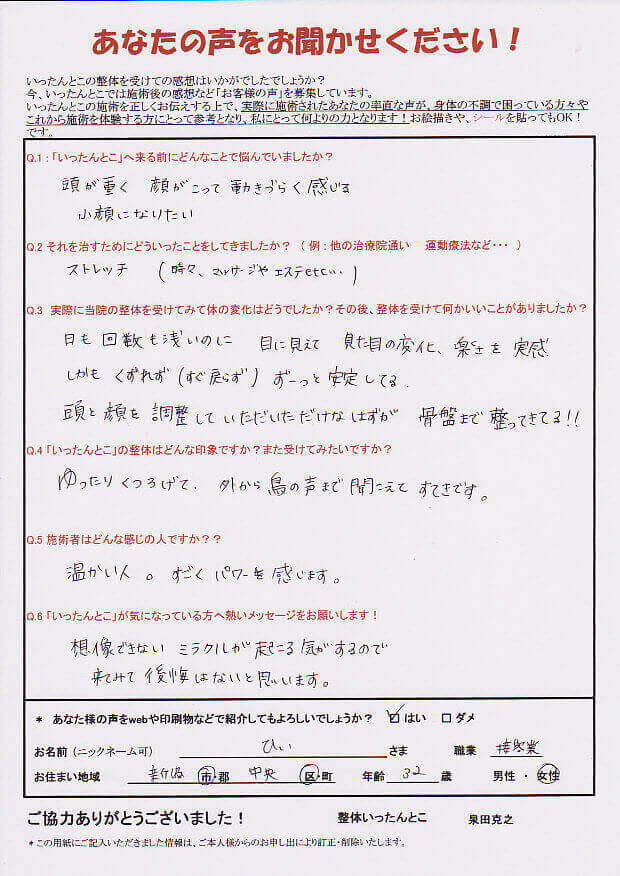 あなたの声をお聞かせください！
いったんとこの整体を受けての感想はいかがでしたでしょうか？
今、いったんとこでは施術後の感想など「お客様の声」を募集しています。
いったんとこの施術を正しくお伝えする上で、実際に施術されたあなたの率直な声が、身体の不調で困っている方々や
これから施術を体験する方にとって参考となり、私にとって何よりの力となります！お絵描きや、シールを貼ってもOK！
です。
Q.1：「いったんとこ」へ来る前にどんなことで悩んでいましたか？
頭が重く 顔がこって 動きづらく感じる
小顔になりたい
Q.2 それを治すためにどういったことをしてきましたか？（例：他の治療院通い 運動療法など・・・ ）
ストレッチ （時々、マッサージや エステetc…）
Q.3 実際に当院の整体を受けてみて体の変化はどうでしたか？その後、整体を受けて何かいいことがありましたか？
日も回数も浅いのに 目に見えて 見た目の変化、楽さを 実感
しかも くずれず（すぐ戻らず）ずーっと安定してる．
頭と顔を調整していただいただけなはずが 骨盤まで整ってきてる!!
Q.4「いったんとこ」の整体はどんな印象ですか？また受けてみたいですか？
ゆったりくつろげて、外から鳥の声まで聞こえて すてきです。
Q.5 施術者はどんな感じの人ですか？？
温かい人 。すごく パワーを感じます。
Q.6「いったんとこ」が気になっている方へ熱いメッセージをお願いします！
想像できない ミラクルが起こる気がするので
来てみて後悔はないと思います。
＊ あなた様の声をwebや印刷物などで紹介してもよろしいでしょうか？ ☑ はい □ ダメ
お名前（ニックネーム可） ひい さま 職業 接客業
お住まい地域 新潟 市・郡 中央 区・町 年齢 32 歳 男性 ・ 女性
ご協力ありがとうございました！ 整体いったんとこ 泉田克之
＊この用紙にご記入いただきました情報は、ご本人様からのお申し出により訂正・削除いたします。